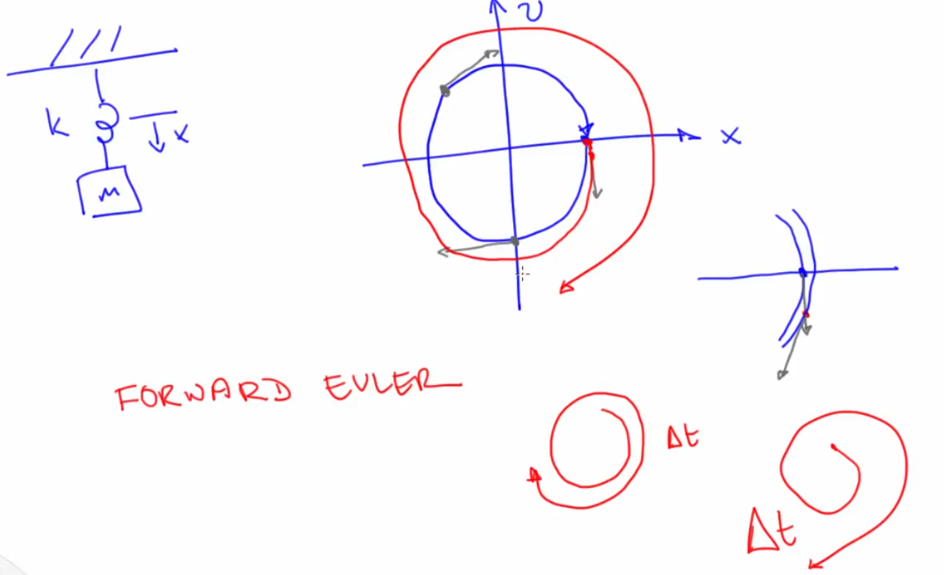 v
k
x
M
x
FORWARD EULER
Δt
Δt